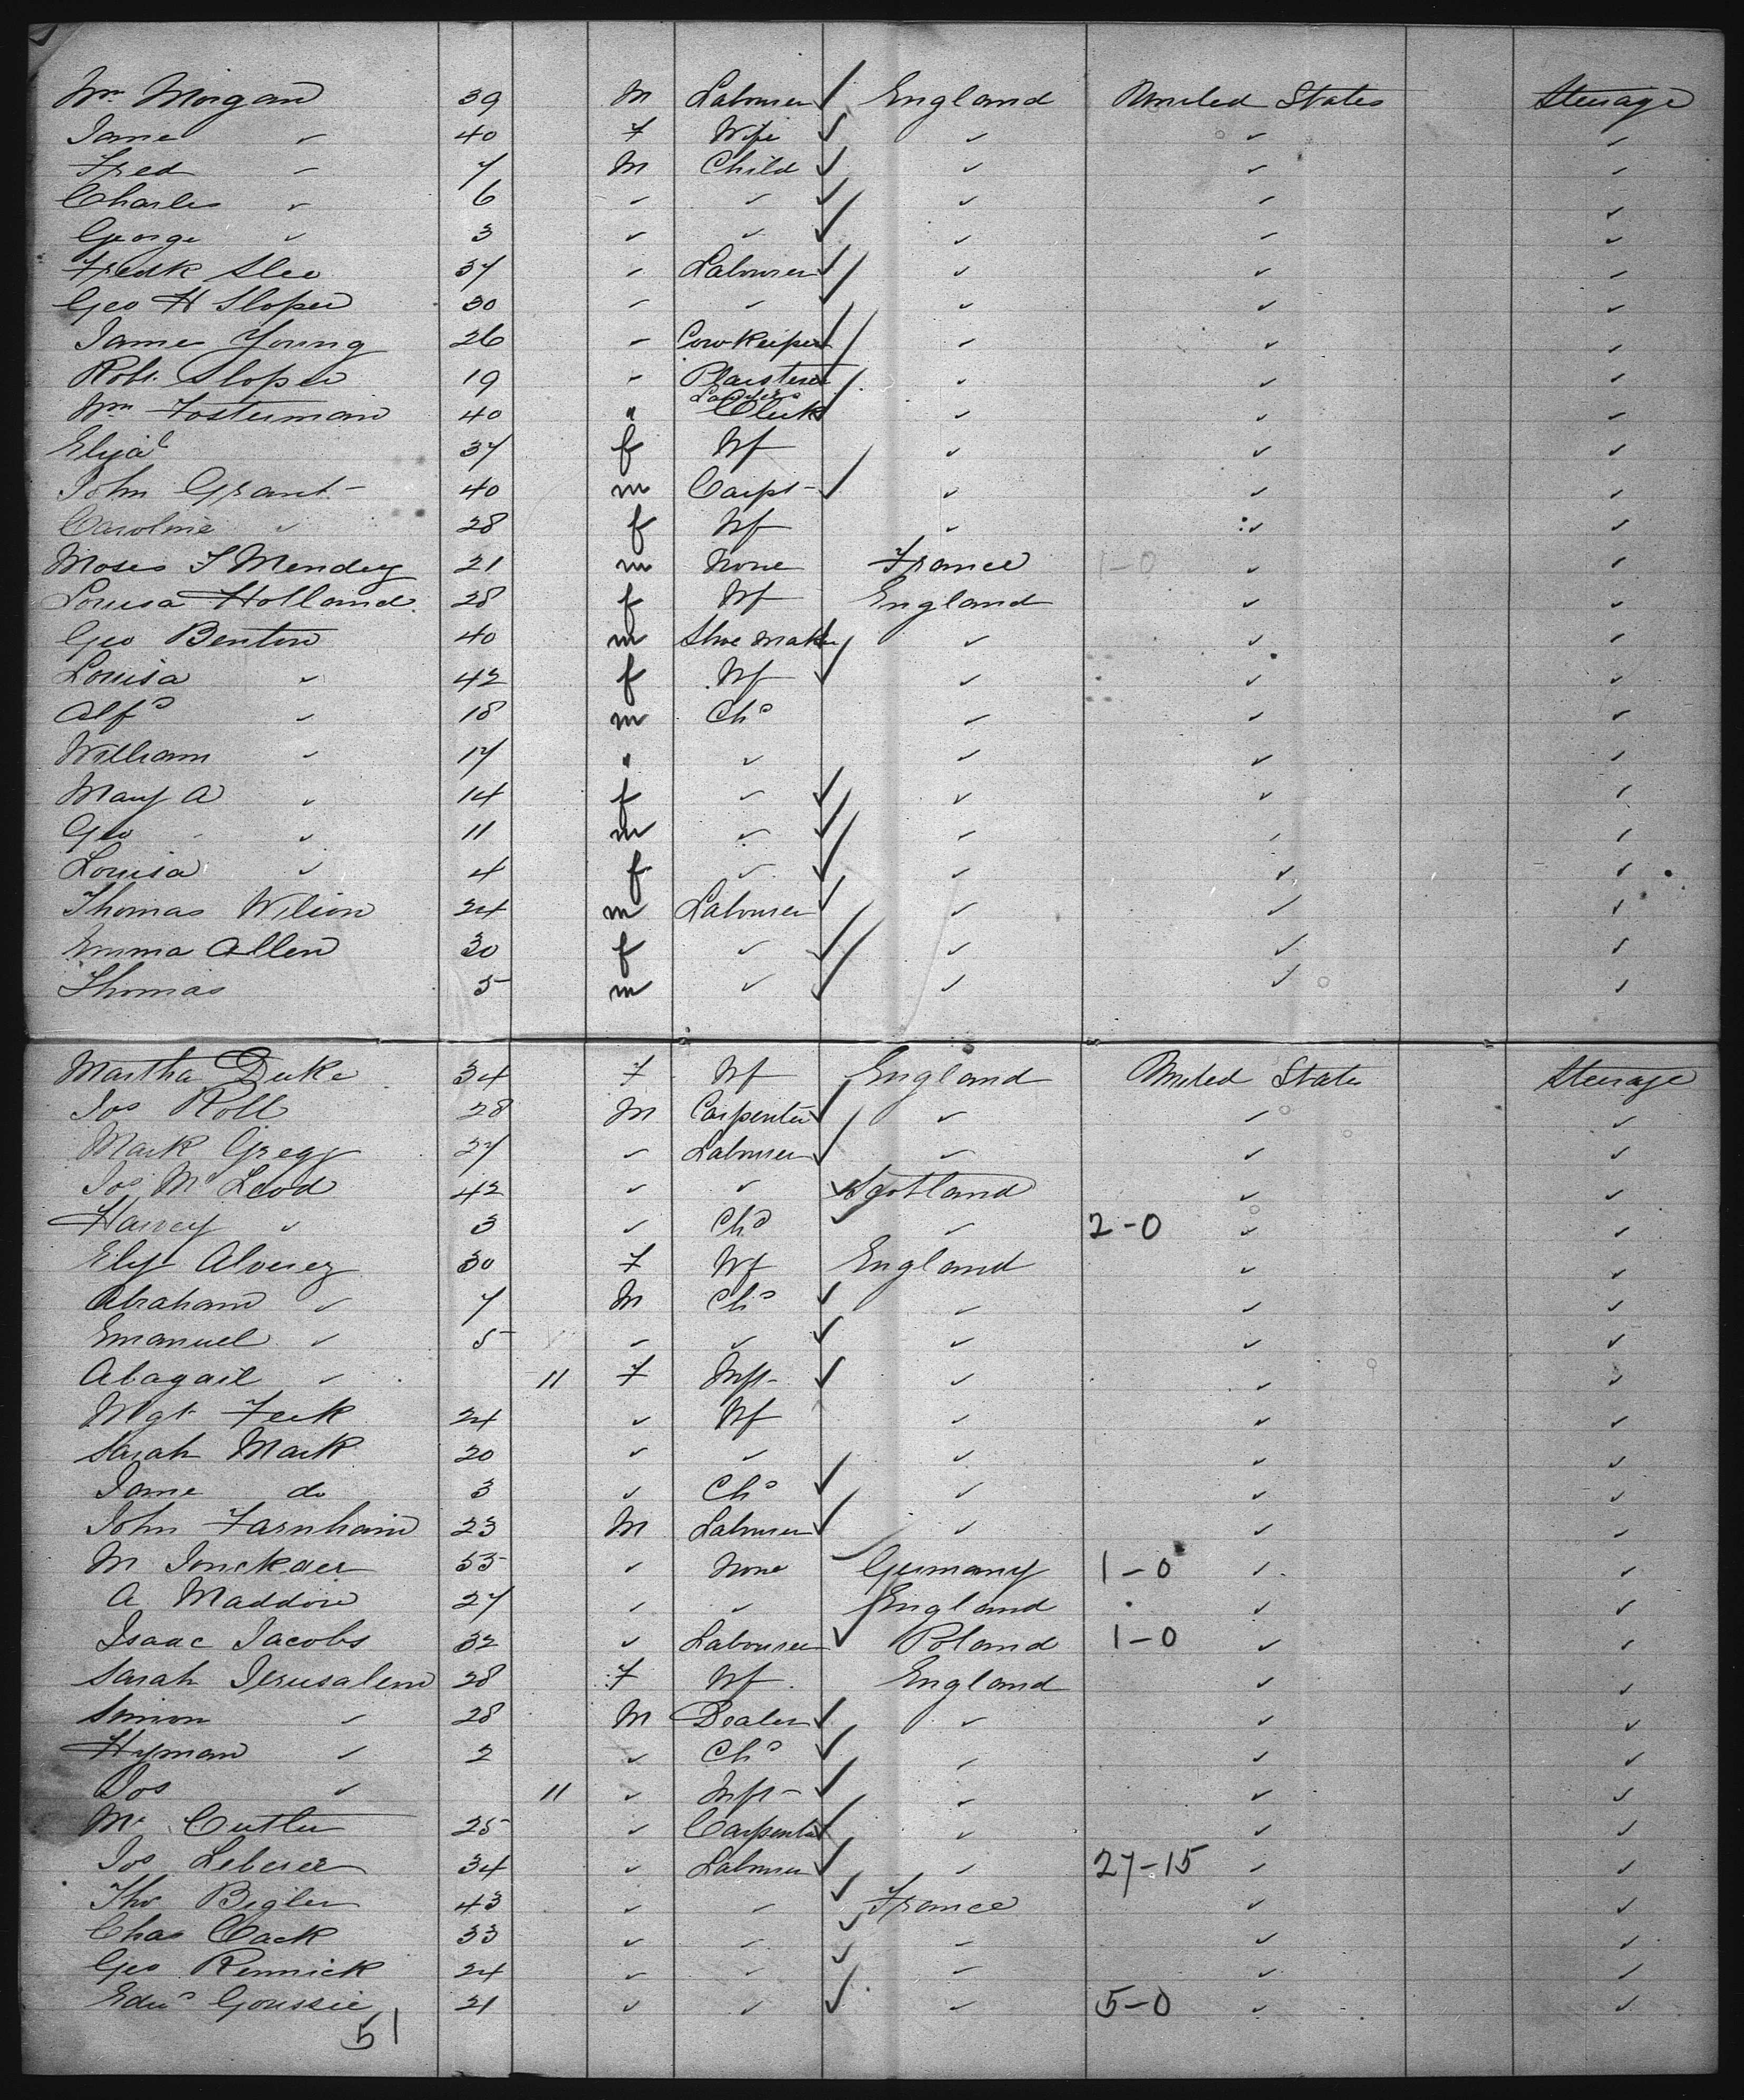 Wm Morgan 39 M Labourer England United States Steerage
Jane ✓ 40 F Wife ✓ ✓ ✓
Fred ✓ 7 M Child ✓ ✓ ✓
Charles ✓ 6 ✓ ✓ ✓ ✓ ✓
George ✓ 3 ✓ ✓ ✓ ✓ ✓
Fredk Slee 37 ✓ Labourer ✓ ✓ ✓
Geo H Sloper 30 ✓ ✓ ✓ ✓ ✓
James Young 26 ✓ Cowkeeper ✓ ✓ ✓
Robt. Sloper 19 ✓ Plaisterer ✓ ✓ ✓
Wm Fosterman 40 " Clerk ✓ ✓ ✓
Eliza 37 f Wf ✓ ✓ ✓
John Grant 40 m Carpt ✓ ✓ ✓
Caroline ✓ 28 f Wf ✓ ✓ ✓
Moses J Mendez 21 m None France 1-0 ✓ ✓
Louisa Holland 28 f Wf England ✓ ✓
Geo Benton 40 m Shoe Maker ✓ ✓ ✓
Louisa ✓ 42 f Wf ✓ ✓ ✓
Alfd ✓ 18 m Chd ✓ ✓ ✓
William ✓ 17 " ✓ ✓ ✓ ✓
Mary A ✓ 14 f ✓ ✓ ✓ ✓
Geo ✓ 11 m ✓ ✓ ✓ ✓
Louisa ✓ 4 f ✓ ✓ ✓ ✓
Thomas Wilson 24 m Labourer ✓ ✓ ✓
Emma Allen 30 f ✓ ✓ ✓ ✓
Thomas 5 m ✓ ✓ ✓ ✓
Martha Duke 34 F Wf England United States Steerage
Jos Roll 28 M Carpenter ✓ ✓ ✓
Mark Gregg 27 ✓ Labourer ✓ ✓ ✓
Jos McLeod 42 ✓ ✓ Scotland ✓ ✓
Harvey ✓ 3 ✓ Chd ✓ 2-0 ✓ ✓
Elizt Alverez 30 F Wf England ✓ ✓
Abraham ✓ 7 M Chd ✓ ✓ ✓
Emanuel ✓ 5 ✓ ✓ ✓ ✓ ✓
Abagail ✓ 11 F Inft ✓ ✓ ✓
Mgt Feek 24 ✓ Wf ✓ ✓ ✓
Sarah Mark 20 ✓ ✓ ✓ ✓ ✓
Jane do 3 ✓ Chd ✓ ✓ ✓
John Farnham 23 M Labourer ✓ ✓ ✓
M Jonckaer 55 ✓ None Germany 1-0 ✓ ✓
A Maddox 27 ✓ ✓ England ✓ ✓
Isaac Jacobs 32 ✓ Labourer Poland 1-0 ✓ ✓
Sarah Jerusalem 28 F Wf England ✓ ✓
Simon ✓ 28 M Dealer ✓ ✓ ✓
Hyman ✓ 2 ✓ Chd ✓ ✓ ✓
Jos ✓ 11 ✓ Inft ✓ ✓ ✓
Cutler 25 ✓ Carpenter ✓ ✓ ✓
Jos Leberer 34 ✓ Labourer ✓ 27-15 ✓ ✓
Thos Bigler 43 ✓ ✓ France ✓ ✓
Chas Cack 33 ✓ ✓ ✓ ✓ ✓
Geo Rennick 24 ✓ ✓ ✓ ✓ ✓
Edwd Goussie 21 ✓ ✓ ✓ 5-0 ✓ ✓
51